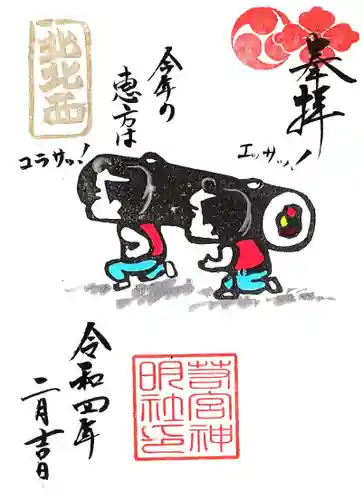 奉拝
今年の
恵方は
北北西
エッサッ!
コラサッ!
令和四年
二月吉日
苧宮神
明社印